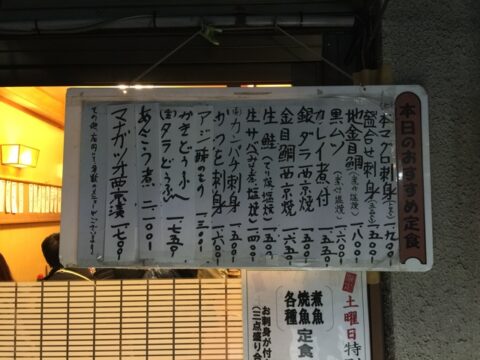 本日のおすすめ定食
本マグロ刺身
盛合せ刺身 一、五〇〇
地金目鯛(煮付 塩焼) 一、八〇〇
黒ムツ(煮付 塩焼) 一、六〇〇
カレイ煮付 一、五〇〇
銀ダラ西京焼 一、五〇〇
金目鯛西京焼 一、六五〇
生鮭(てり焼 塩焼) 一、五〇〇
生サバ(みそ煮 塩焼) 一、四〇〇
カンパチ刺身 一、五五〇
かつを刺身 一、六〇〇
アジ酢のもの 一、三〇〇
かきどうふ
タラどうふ 一、七五〇
あんこう煮 二、一〇〇
マナガツオ西京漬 一、七〇〇
土曜日特
煮魚
焼魚 定食
各種
お刺身が付
(三点盛り合